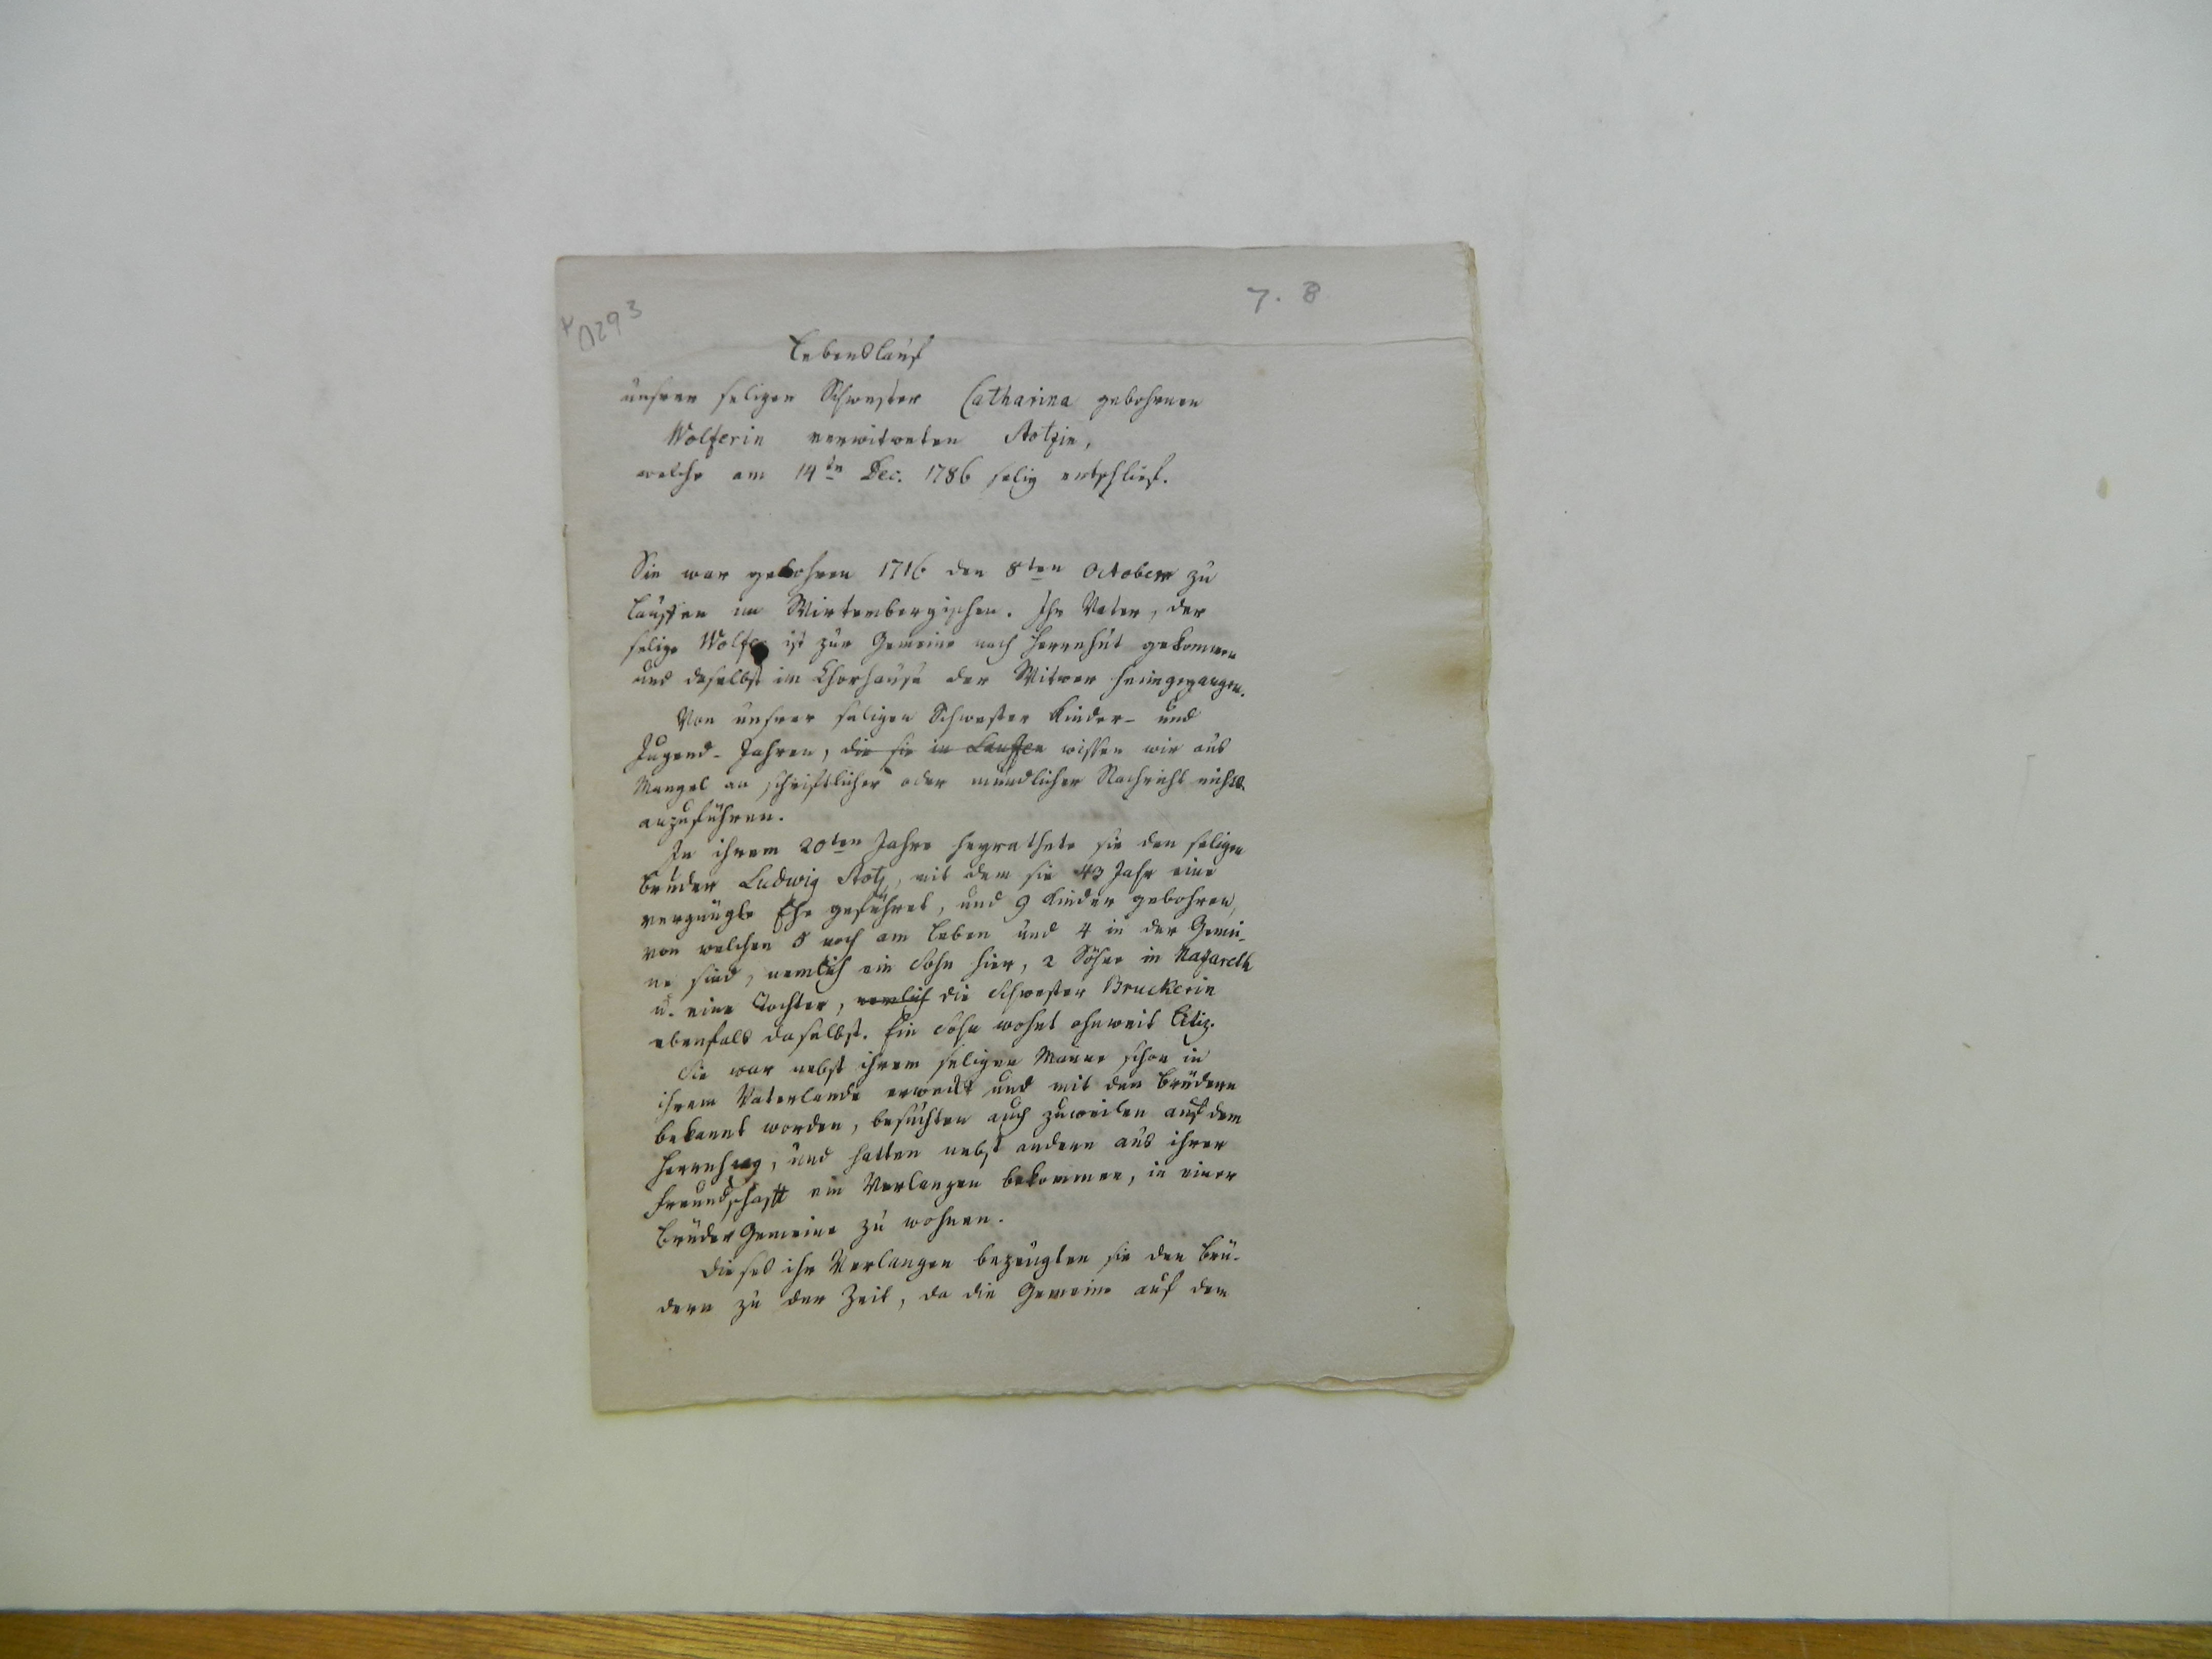 0293
7. B
Lebenslauf
unsrer seligen Schwester Catharina gebohrnen
Wolferin verwitweten Stotzin,
welche am 14ten Dec. 1786 selig entschlief.
Sie war gebohren 1716 den 8ten October zu
Lauffen im Wirtembergischen. Ihr Vater, der
selige Wolfer ist zur Gemeine nach Herrnhut gekommen
und daselbst im Chorhause der Witwer heimgegangen.
Von unsrer seligen Schwester Kinder- und
Jugend-Jahren, die sie in Lauffen wissen wir aus
Mangel an schriftlicher oder mündlicher Nachricht nichts
anzuführen.
In ihrem 20ten Jahre heyrathete sie den seligen
Bruder Ludwig Stotz, mit dem sie 43 Jahr eine
vergnügte Ehe geführet, und 9 Kinder gebohren,
von welchen 5 noch am Leben und 4 in der Gemei-
ne sind, nemlich ein Sohn hier, 2 Söhne in Nazareth
u. eine Tochter, nemlich die Schwester Bruckerin
ebenfals daselbst. Ein Sohn wohnt ohnweit Litiz.
Sie war nebst ihrem seligen Manne schon in
ihrem Vaterlande erweckt und mit den Brüdern
bekannt worden, besuchten auch zuweilen auf dem
Herrnhaag, und hatten nebst andern aus ihrer
Freundschafft ein Verlangen bekommen, in einer
Brüder Gemeine zu wohnen.
Dieses ihr Verlangen bezeugten sie den Brü-
dern zu der Zeit, da die Gemeine auf dem